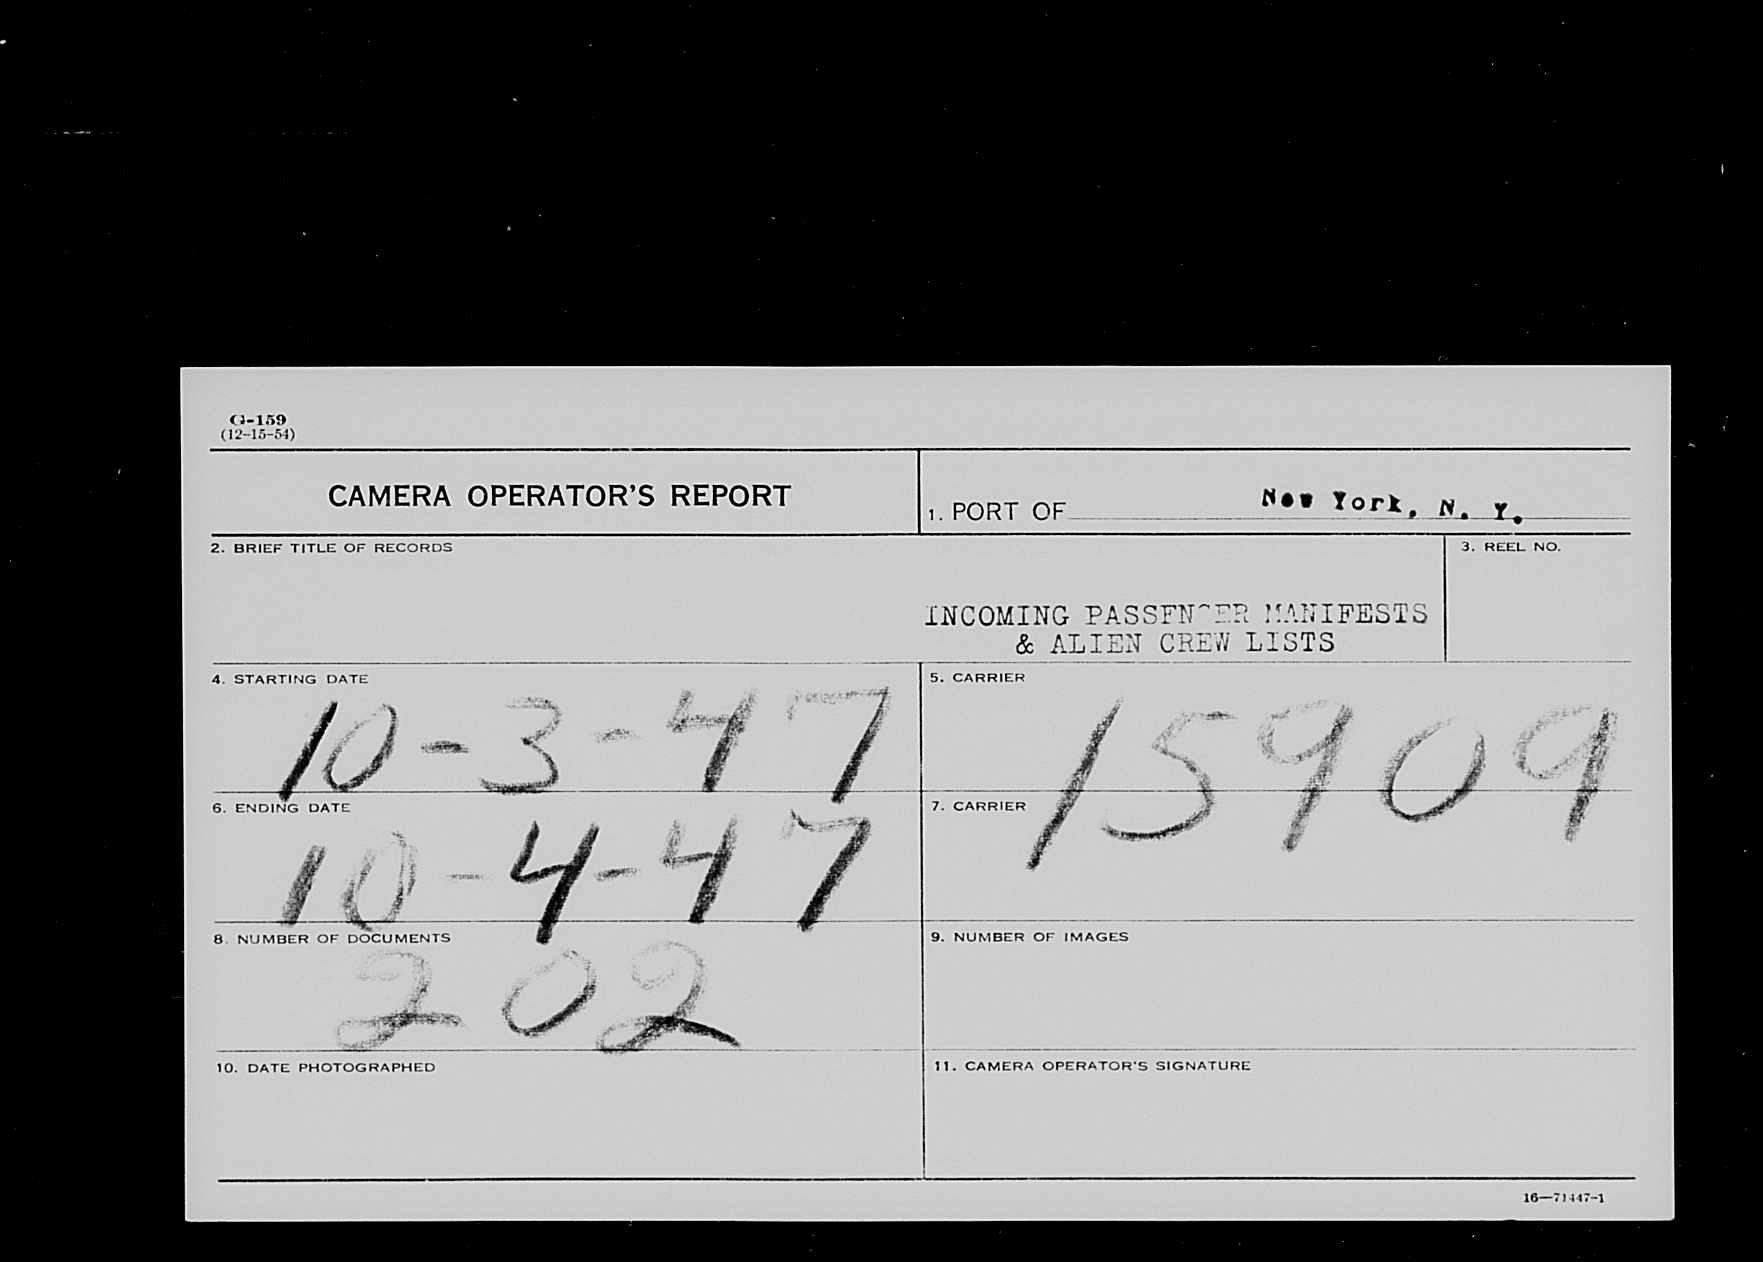 G-159
(12-15-54)
CAMERA OPERATOR'S REPORT
1. PORT OF New York, N. Y.
2. BRIEF TITLE OF RECORDS
3. REEL NO.
INCOMING PASSENGER MANIFESTS
& ALIEN CREW LISTS
4. STARTING DATE
10-3-47
5. CARRIER
15909
6. ENDING DATE
10-4-47
7. CARRIER
8. NUMBER OF DOCUMENTS
202
9. NUMBER OF IMAGES
10. DATE PHOTOGRAPHED
11. CAMERA OPERATOR'S SIGNATURE
16—71447-1